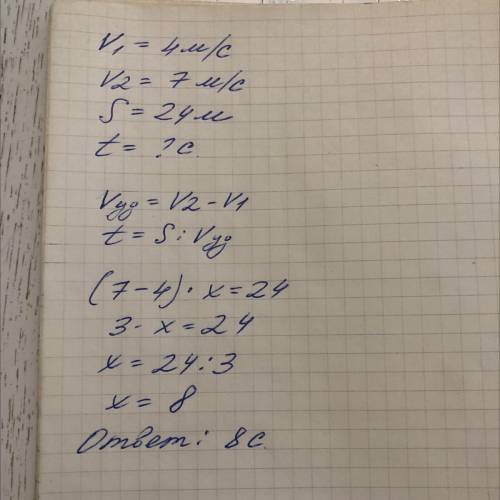 V1 = 4 м/с
V2 = 7 м/с
S = 24 м
t = ? с.
Vуд = V2 - V1
t = S : Vуд
(7 - 4) · x = 24
3 · x = 24
x = 24 : 3
x = 8
Ответ: 8 с.